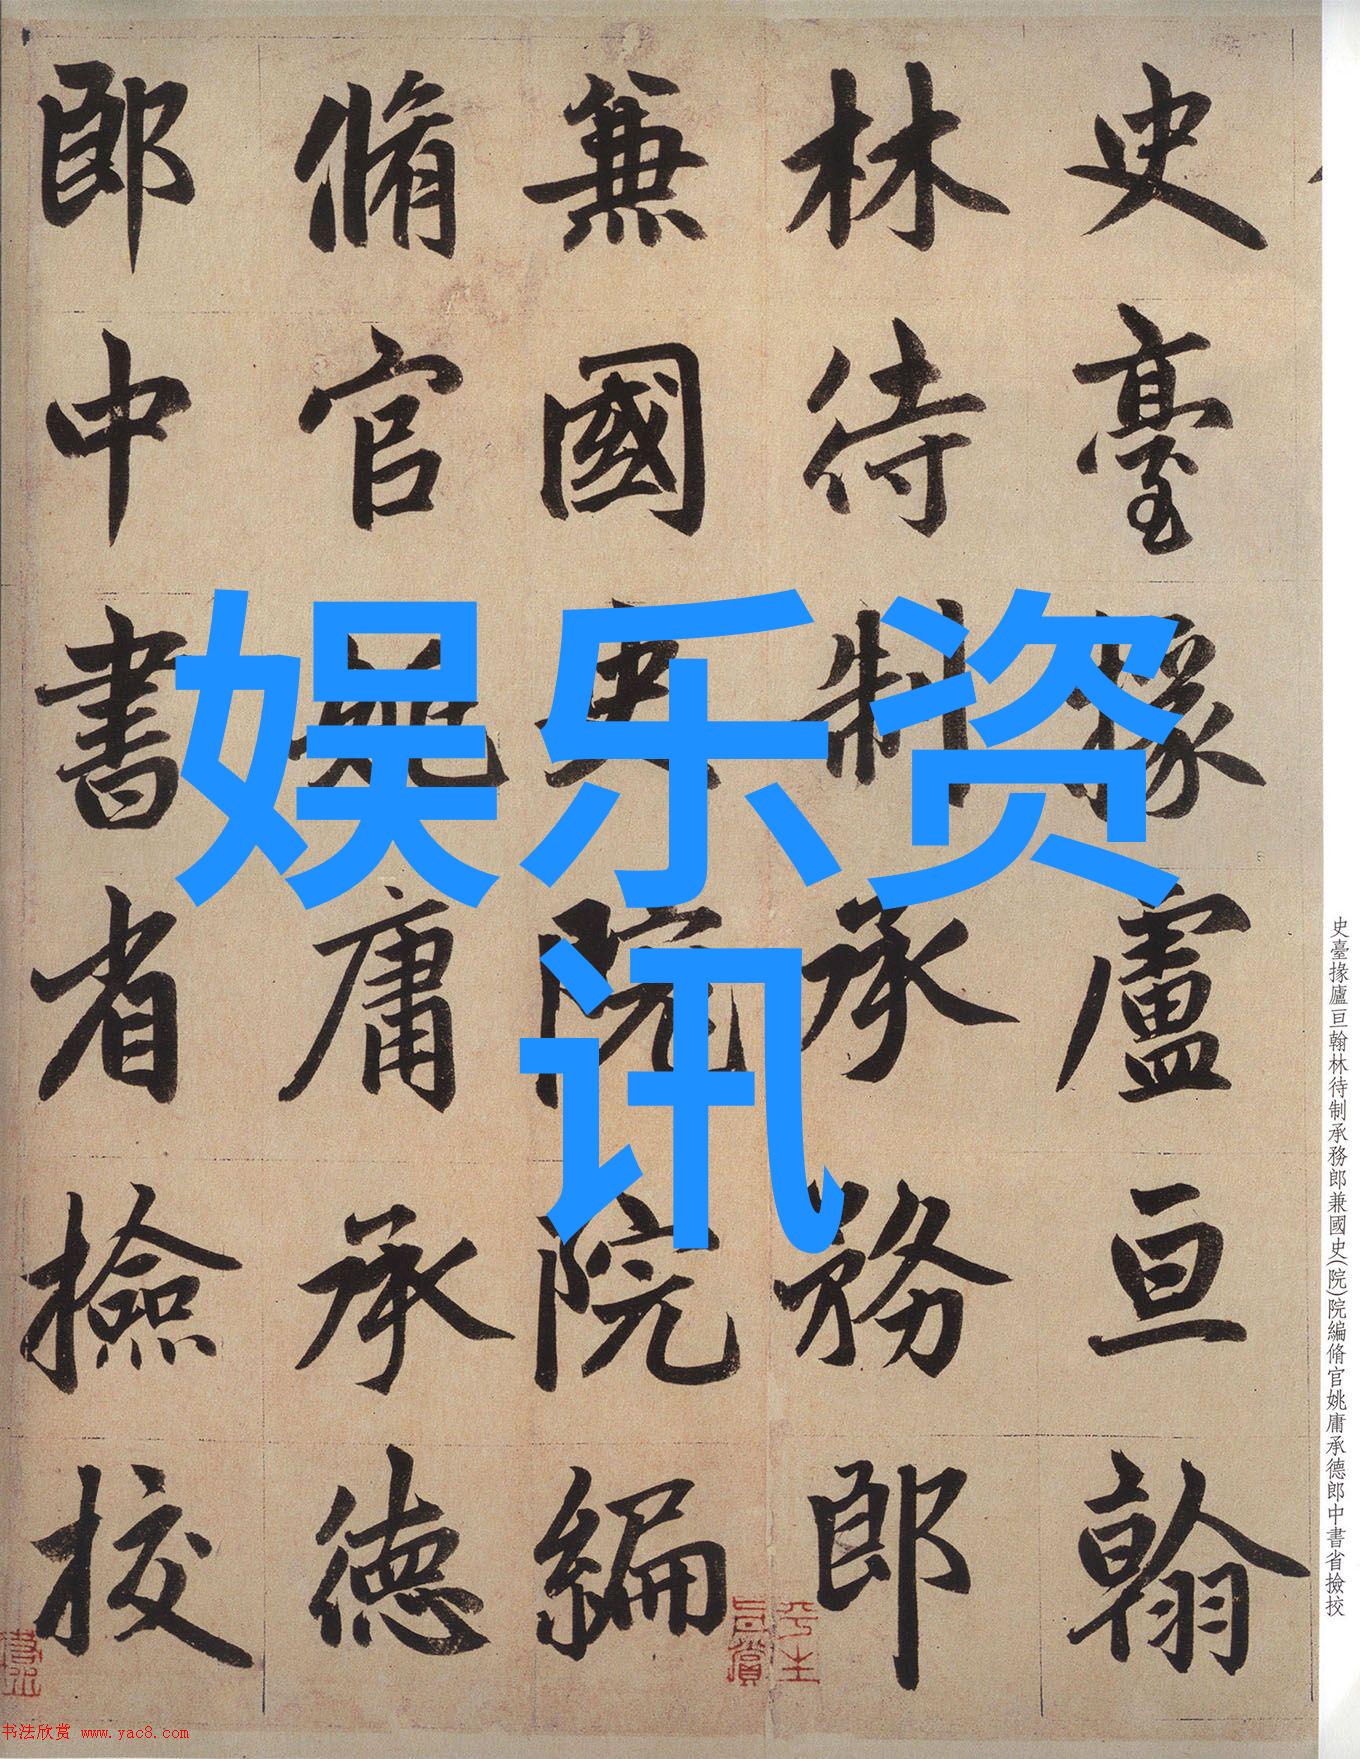 史臺掾盧亘翰
林待制承務郎
兼國史院院編
脩官姚庸承德
郎中書省撿挍
娱乐资
讯
史臺掾廬亘翰林待制承務郎兼國史(院)院編脩官姚庸承德郎中書省撿挍
平生
书法欣赏 www.yac8.com